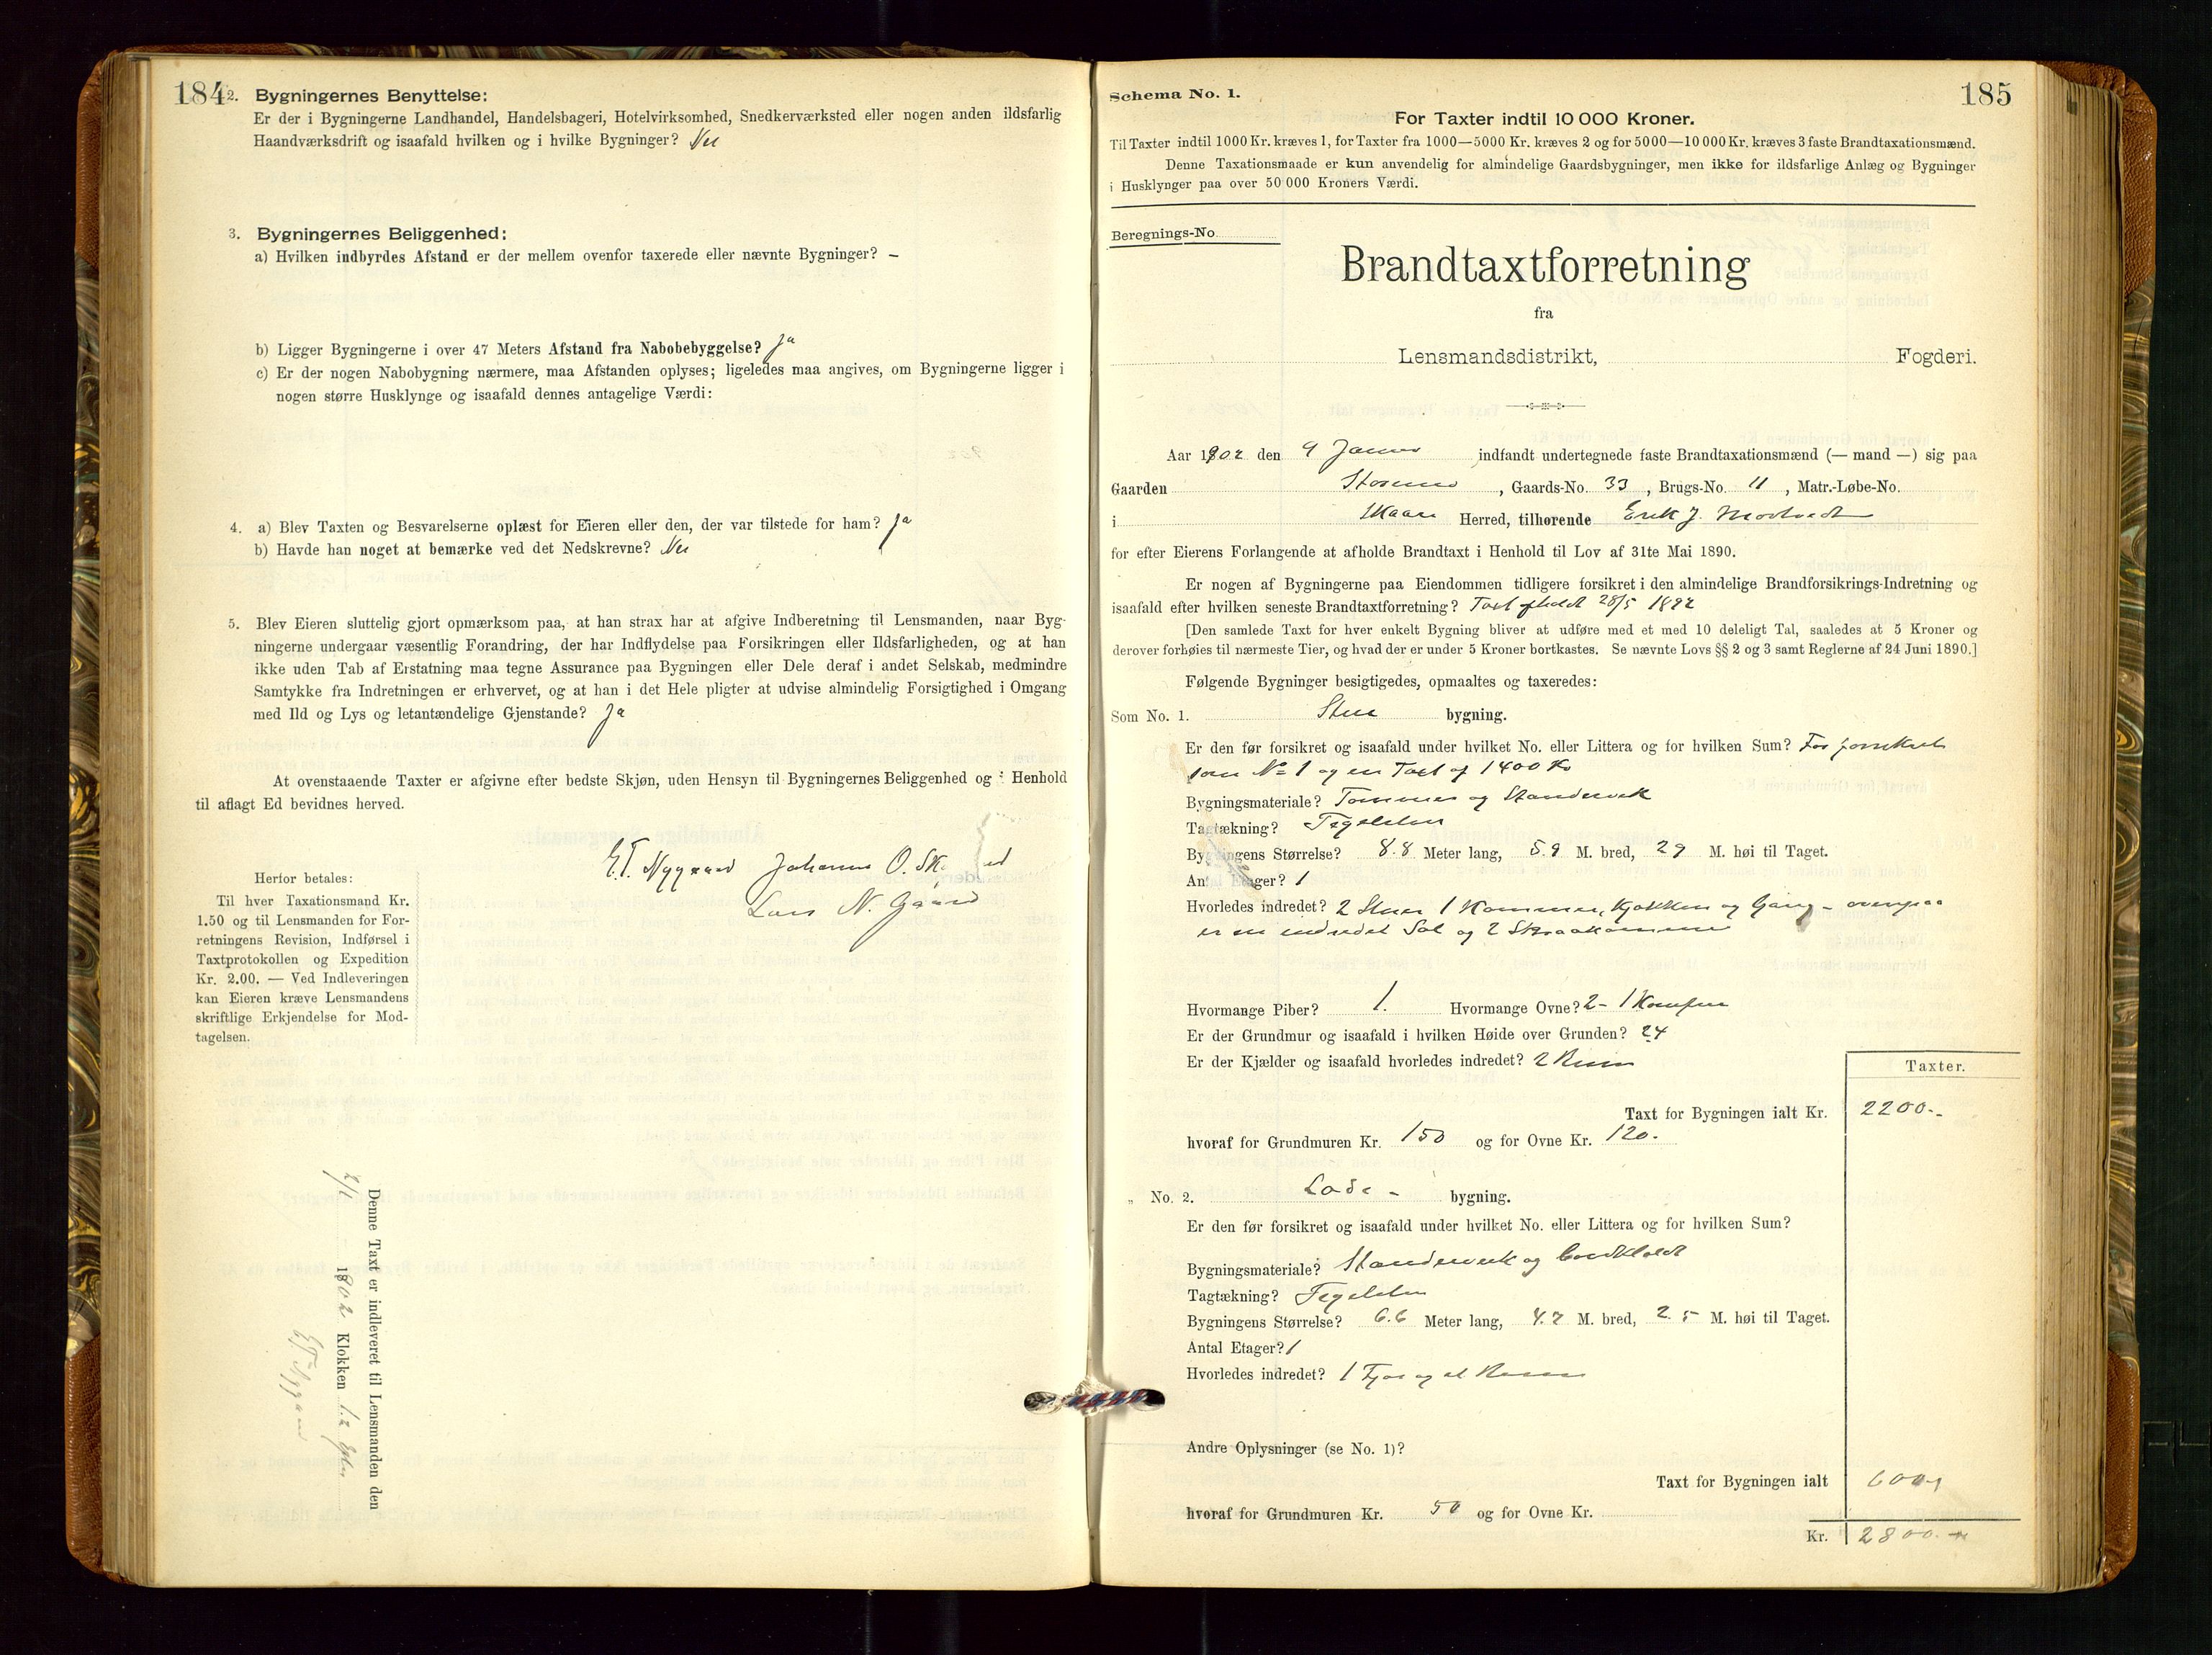 184
2. Bygningernes Benyttelse:
Er der i Bygningerne Landhandel, Handelsbageri, Hotelvirksomhed, Snedkerværksted eller nogen anden ildsfarlig
Haandværksdrift og isaafald hvilken og i hvilke Bygninger? Nei
3. Bygningernes Beliggenhed:
a) Hvilken indbyrdes Afstand er der mellem ovenfor taxerede eller nævnte Bygninger? –
b) Ligger Bygningerne i over 47 Meters Afstand fra Nabobebyggelse? Ja
c) Er der nogen Nabobygning nærmere, maa Afstanden oplyses; ligeledes maa angives, om Bygningerne ligger i
nogen større Husklynge og isaafald dennes antagelige Værdi:
4. a) Blev Taxten og Besvarelserne oplæst for Eieren eller den, der var tilstede for ham? Ja
b) Havde han noget at bemærke ved det Nedskrevne? Nei
5. Blev Eieren sluttelig gjort opmærksom paa, at han strax har at afgive Indberetning til Lensmanden, naar Byg-
ningerne undergaar væsentlig Forandring, der har Indflydelse paa Forsikringen eller Ildsfarligheden, og at han
ikke uden Tab af Erstatning maa tegne Assurance paa Bygningen eller Dele deraf i andet Selskab, medmindre
Samtykke fra Indretningen er erhvervet, og at han i det Hele pligter at udvise almindelig Forsigtighed i Omgang
med Ild og Lys og letantændelige Gjenstande? Ja
At ovenstaaende Taxter er afgivne efter bedste Skjøn, uden Hensyn til Bygningernes Beliggenhed og i Henhold
til aflagt Ed bevidnes herved.
E.T. Nygaard Johannes O.
Lars N. Gaard
Herfor betales:
Til hver Taxationsmand Kr.
1.50 og til Lensmanden for For-
retningens Revision, Indførsel i
Taxtprotokollen og Expedition
Kr. 2.00. — Ved Indleveringen
kan Eieren kræve Lensmandens
skriftlige Erkjendelse for Mod-
tagelsen.
Denne Taxt er indleveret til Lensmanden den
1902 Klokken 12
185
Schema No. 1.
For Taxter indtil 10 000 Kroner.
Til Taxter indtil 1000 Kr. kræves 1, for Taxter fra 1000—5000 Kr. kræves 2 og for 5000—10 000 Kr. kræves 3 faste Brandtaxationsmænd.
Denne Taxationsmaade er kun anvendelig for almindelige Gaardsbygninger, men ikke for ildsfarlige Anlæg og Bygninger
i Husklynger paa over 50 000 Kroners Værdi.
Beregnings-No.
Brandtaxtforretning
fra
Lensmandsdistrikt, Fogderi.
Aar 1902 den 9 Januar indfandt undertegnede faste Brandtaxationsmænd (— mand —) sig paa
Gaarden , Gaards-No. 33, Brugs-No. 11, Matr.-Løbe-No.
i Skaare Herred, tilhørende Erik J.
for efter Eierens Forlangende at afholde Brandtaxt i Henhold til Lov af 31te Mai 1890.
Er nogen af Bygningerne paa Eiendommen tidligere forsikret i den almindelige Brandforsikrings-Indretning og
isaafald efter hvilken seneste Brandtaxtforretning? Taxt afholdt 28/5 1892
[Den samlede Taxt for hver enkelt Bygning bliver at udføre med et med 10 deleligt Tal, saaledes at 5 Kroner og
derover forhøies til nærmeste Tier, og hvad der er under 5 Kroner bortkastes. Se nævnte Lovs §§ 2 og 3 samt Reglerne af 24 Juni 1890.]
Følgende Bygninger besigtigedes, opmaaltes og taxeredes:
Som No. 1. Stue bygning.
Er den før forsikret og isaafald under hvilket No. eller Littera og for hvilken Sum? Før forsikret
som No 1 og en Taxt af 1400 Kr
Bygningsmateriale? Tømmer og Standerverk
Tagtækning? Teglsten
Bygningens Størrelse? 8.8 Meter lang, 5.9 M. bred, 2.9 M. høi til Taget.
Antal Etager? 1
Hvorledes indredet? 2 Stuer 1 Kammer, Kjøkken og Gang – ovenpaa
er en indredet Sal og 2 Skraakammer
Hvormange Piber? 1. Hvormange Ovne? 2 – 1 Komfur
Er der Grundmur og isaafald i hvilken Høide over Grunden? 2.4
Er der Kjælder og isaafald hvorledes indredet? 2 Rum
Taxter.
Taxt for Bygningen ialt Kr. 2200.-
hvoraf for Grundmuren Kr. 150 og for Ovne Kr. 120.-
„ No. 2. Lade - bygning.
Er den før forsikret og isaafald under hvilket No. eller Littera og for hvilken Sum?
Bygningsmateriale? Standerverk og bordklædt
Tagtækning? Teglsten
Bygningens Størrelse? 6.6 Meter lang, 4.7 M. bred, 2.5 M. høi til Taget.
Antal Etager? 1
Hvorledes indredet? 1 Fjøs og et Rum
Andre Oplysninger (se No. 1)?
Taxt for Bygningen ialt 600,-
hvoraf for Grundmuren Kr. 50 og for Ovne Kr.
Kr. 2800.-